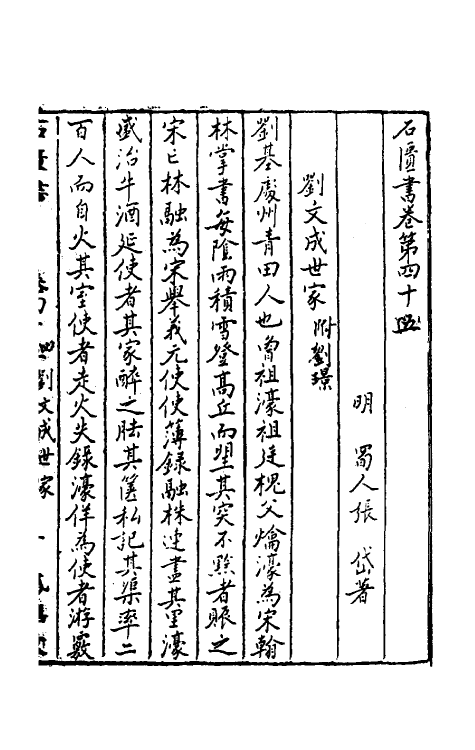 石匱書卷第四十四
明　蜀人張　岱著
劉文成世家 附劉璟
劉基處州青田人也曾祖濠祖廷槐父爚濠為宋翰
林掌書每陰雨積雪登高丘而望其突不黔者賑之
宋亡林融為宋舉義元使使簿錄融株連盡其里濠
盛治牛酒延使者其家醉之胠其篋私記其渠率二
百人而自火其室使者走火失錄濠佯為使者游竅
石匱書　卷四十四　劉文成世家　一